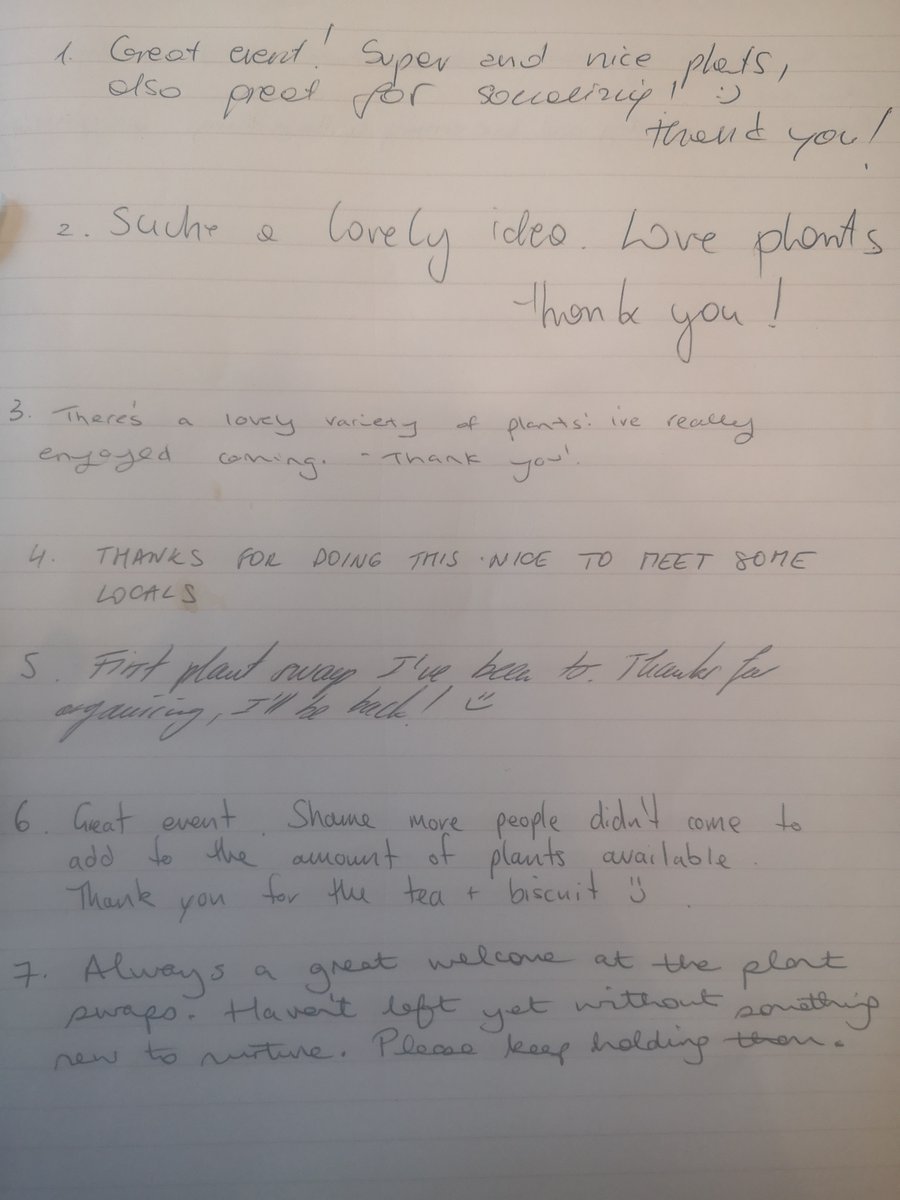 1. Great event! Super and nice plats,
also great for socializing! :)
thank you!
2. Suche a lovely idea. Love plants
thank you!
3. There's a lovey variety of plants! ive really
engoyed coming. - Thank you!
4. THANKS FOR DOING THIS. NICE TO MEET SOME
LOCALS
5. First plant swap I've been to. Thanks for
organising, I'll be back! :)
6. Great event. Shame more people didn't come to
add to the amount of plants available.
Thank you for the tea + biscuit :)
7. Always a great welcome at the plant
swaps. Haven't left yet without something
new to nurture. Please keep holding them.